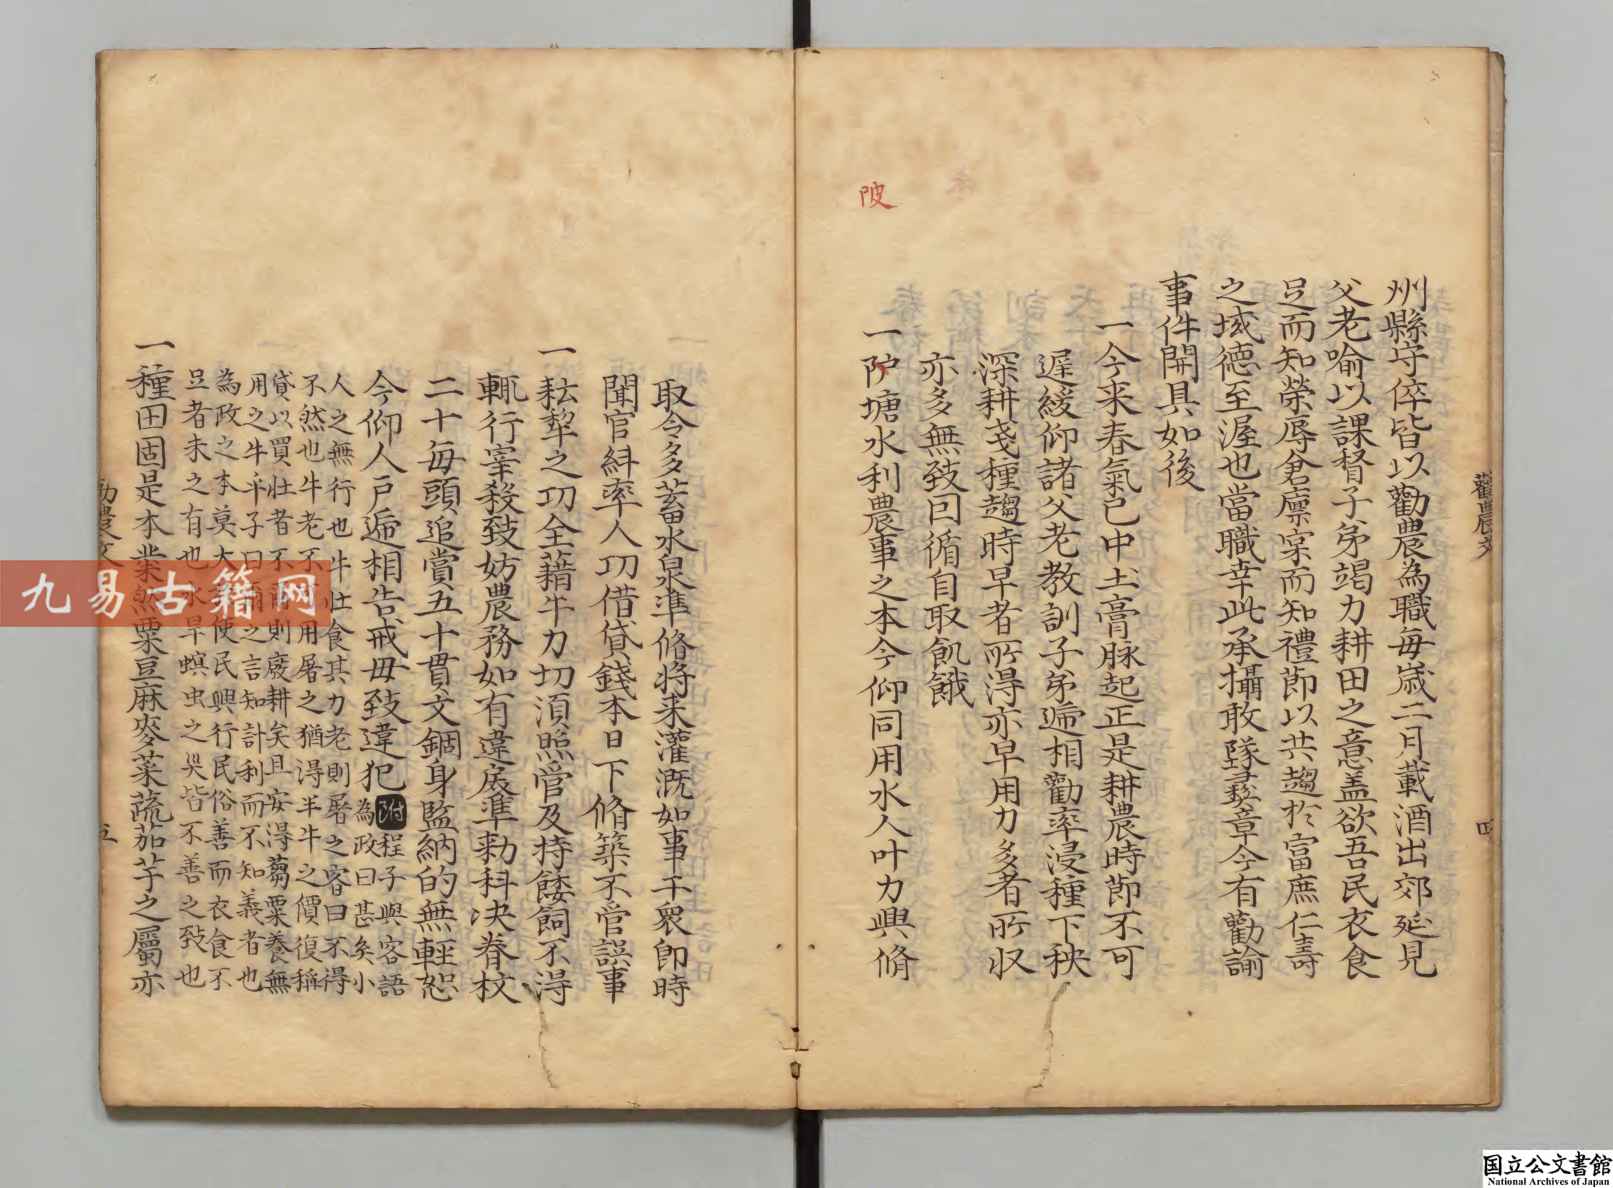 勸農文
四
州縣守倅皆以勸農為職每歲二月載酒出郊延見
父老喻以課督子弟竭力耕田之意盖欲吾民衣食
足而知榮辱倉廩宲而知禮節以共趨於富庶仁壽
之域德至渥也當職幸此承攝敢墜彛章今有勸諭
事件開具如後
一今来春氣已中土膏脉起正是耕農時節不可
遲緩仰諸父老教訓子弟遞相勸率浸種下秧
深耕浅種趨時早者所得亦早用力多者所収
亦多無致囙循自取飢餓
陂
一陂塘水利農事之本今仰同用水人叶力興脩
取令多蓄水泉準脩将来灌溉如事干衆即時
聞官糾率人功借貸錢本日下脩築不管誤事
一耘犂之功全藉牛力切湏照管及持餧飼不得
輒行宰殺致妨農務如有違戾準勑科决脊杖
二十每頭追賞五十貫文錮身監納的無輕恕
今仰人戸遞相告戒毋致違犯附程子與客語
為政曰甚矣小
人之無行也牛壮食其力老則屠之客曰不得
不然也牛老不可用屠之猶得半牛之價復稱
貸以買壮者不爾則廢耕矣且安得蒭粟養無
用之牛乎子曰爾之言知計利而不知義者也
為政之本莫大於使民興行民俗善而衣食不
足者未之有也水旱螟虫之灾皆不善之致也
一種田固是本業然粟豆麻麥菜蔬茄芋之屬亦
勸農文
五
九易古籍网
国立公文書館
National Archives of Japan